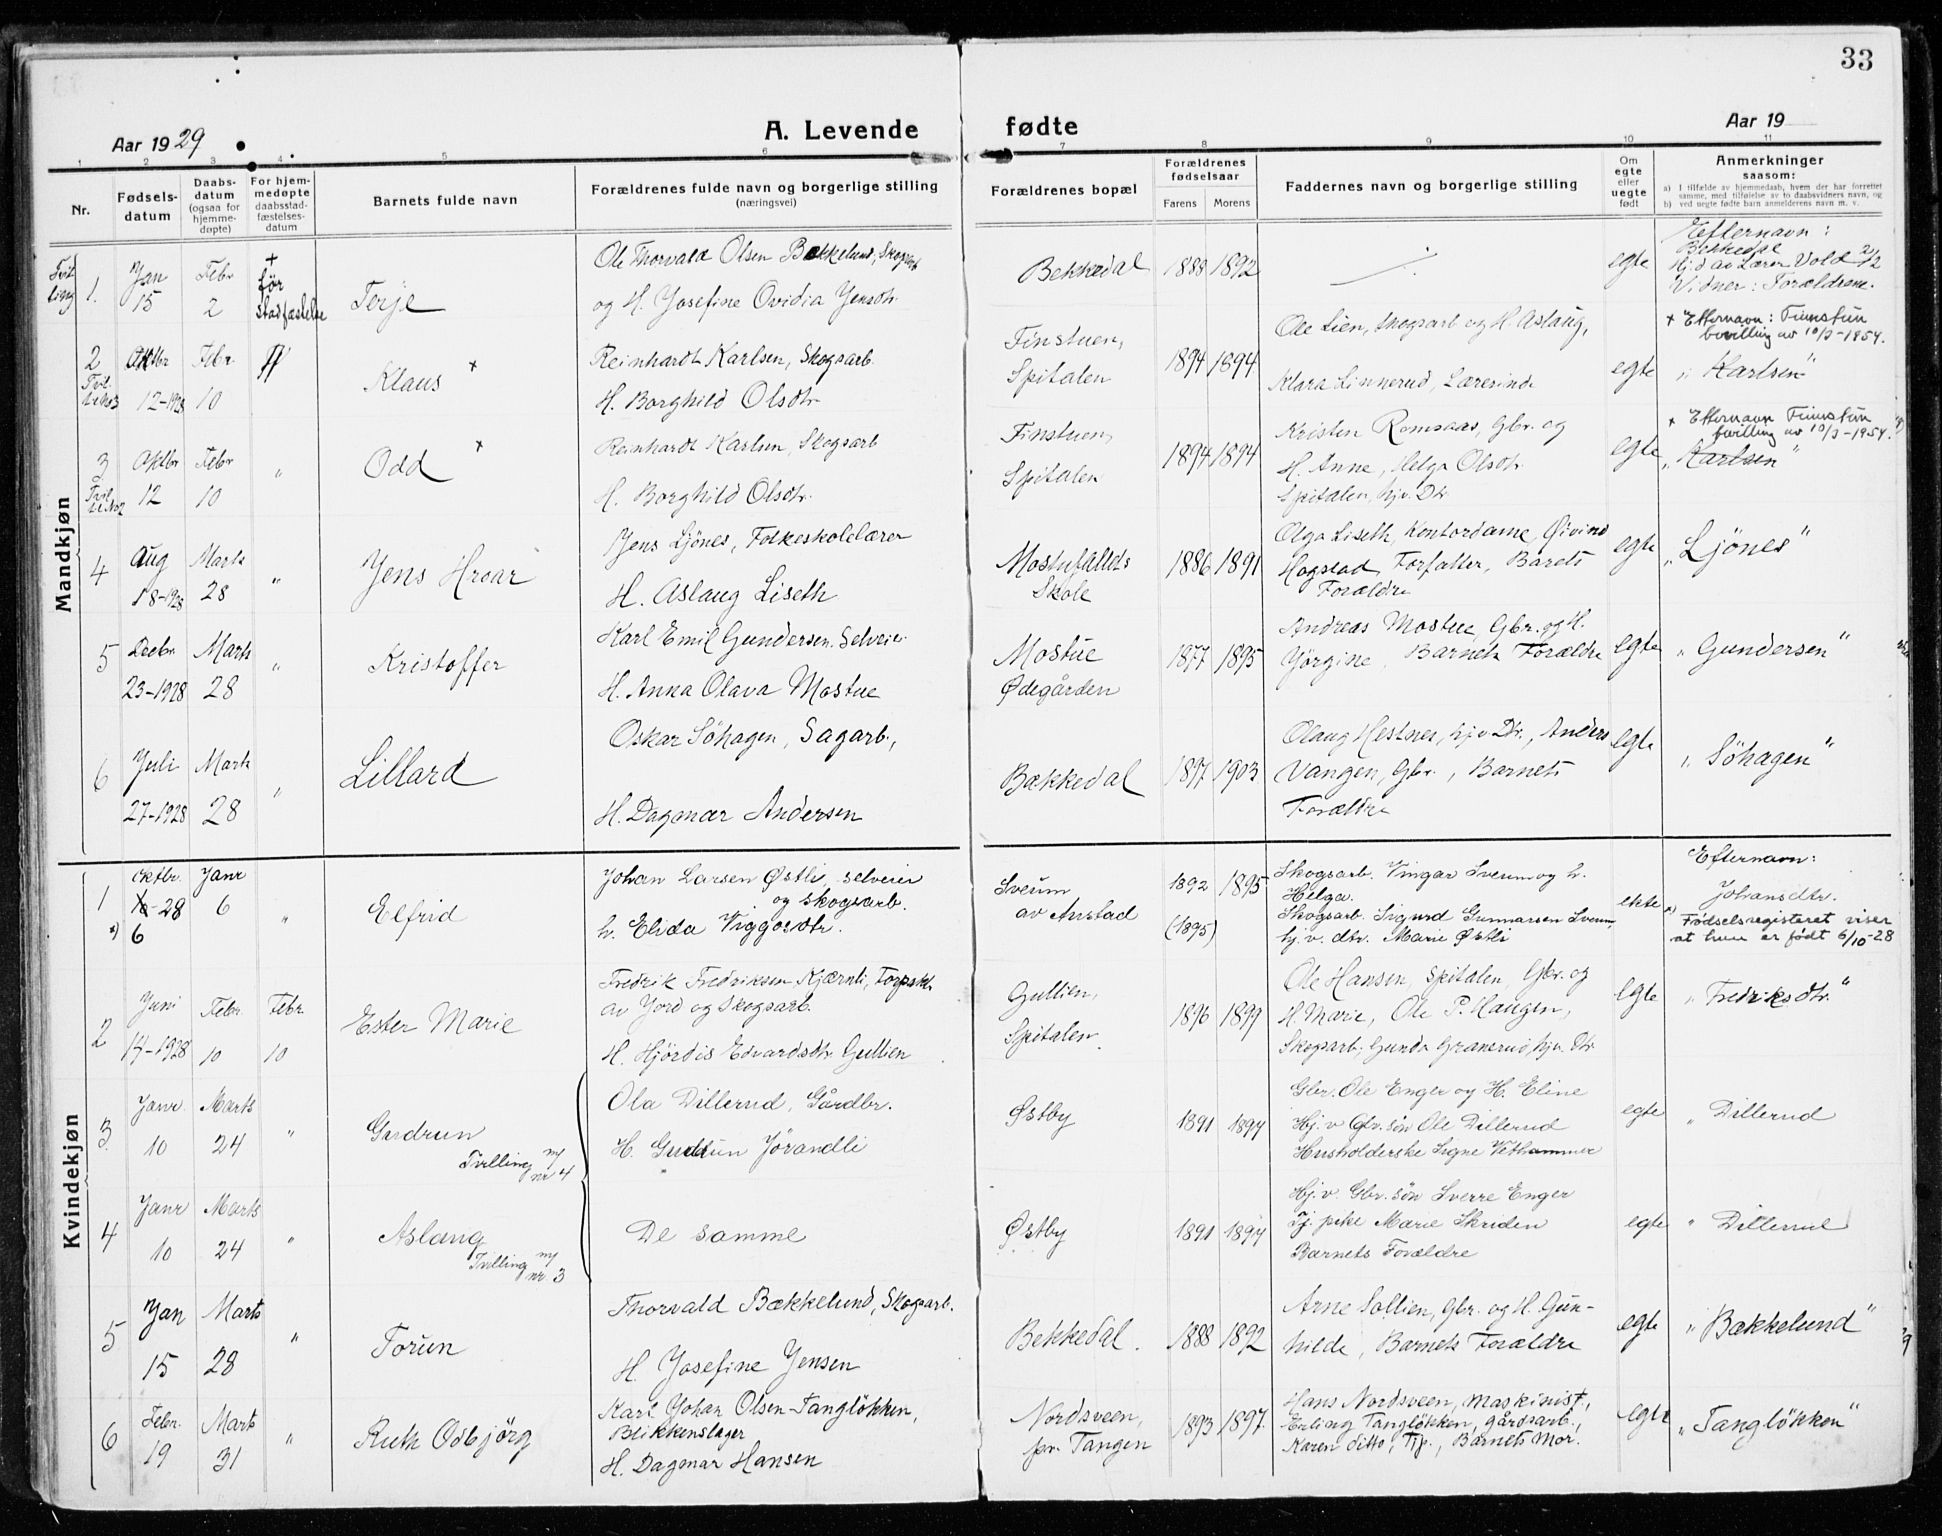 33
Aar 1929
A. Levende fødte
Aar 19
1 2 3 4 5 6 7 8 9 10 11
Nr.
Fødsels-
datum
Daabs-
datum
(ogsaa for
hjemme-
døpte)
For hjem-
medøpte
daabsstad-
fæstelses-
datum
Barnets fulde navn
Forældrenes fulde navn og borgerlige stilling
(næringsvei)
Forældrenes bopæl
Forældrenes
fødselsaar
Farens Morens
Faddernes navn og borgerlige stilling
Om
egte
eller
uegte
født
Anmerkninger
saasom:
a) I tilfælde av hjemmedaab, hvem der har forrettet
samme, med tilføielse av to daabsvidners navn, og
b) ved uegte fødte barn anmelderens navn m. v.
Mandkjøn
Tvil
ling 1.
Jan
15
Febr
2
+
før
stadfæstelse
Terje
Ole Thorvald Olsen Bekkelund, Skogsarb
og H. Josefine Ovidia Jensdtr.
Bekkedal
1888 1892
egte
Efternavn:
Bekkedal
Hj.d av Lærer Vold 2/2
Vidner: Forældrene.
2
Tvil.
Oktbr
12-1928
Febr.
10
Klaus +
Reinhardt Karlsen, Skogsarb.
H. Borghild Olsdtr.
Finstuen,
Spitalen
1894 1894
Ole Lien, Skogsarb og H. Aslaug,
Klara Linnerud, Lærerinde
egte
+ Efternavn: Finnstun
bevilling av 10/3-1954.
„ Karlsen"
3
Oktbr
12
Febr
10
"
Odd +
Reinhardt Karlsen, Skogsarb
H. Borghild Olsdtr.
Finstuen,
Spitalen
1894 1894
Kristen Romsaas, Gbr. og
H. Anne, Helga Olsdtr.
Spitalen, hjv. Dtr.
egte
+ Efternavn Finnstun
bevilling av 10/3-1954.
„ Karlsen "
4
Aug
18-1928
Marts
28
"
Jens Hroar
Jens Ljönes, Folkeskolelærer
H. Aslaug Liseth
Mostufallets
Skole
1886 1891
Olga Liseth, Kontordame, Øivind
Hogstad, Forfatter, Barnets
Forældre
egte
„ Ljönes"
5
Decbr.
23-1928
Marts
28
"
Kristoffer
Karl Emil Gundersen. Selveier.
H. Anna Olava Mostue
Mostue
Ødegården
1877 1895
Andreas Mostue, Gbr. og H.
Jörgine, Barnets Forældre
egte
„ Gundersen"
6
Juli
27-1928
Marts
28
"
Lillard
Oskar Söhagen, Sagarb.,
H. Dagmar Andersen
Bækkedal
1897 1903
Olaug Hestnes, hjv. Dtr., Anders
Vangen, Gbr., Barnets
Forældre
egte
„ Söhagen"
Kvindekjøn
1
x)
Oktbr.
16-28
6
Janr
6
"
Elfrid
Johan Larsen Østli, selveier
og skogsarb.
h. Elida Viggosdtr.
Sverum
av Anstad
1892 1895
(1895)
Skogsarb. Vingar Sverum og h.
Helga.
Skogsarb. Sigurd Gunnarsen Sverum,
hj. v. dtr. Marie Østli
ekte
Efternavn:
Johansdtr.
x) Fødselsregisteret viser
at hun er født 6/10-28
2
Juni
14-1928
Febr.
10
Febr
10
Ester Marie
Fredrik Fredriksen Kjærnli, Forpakt.
av Jord og Skogsarb.
H. Hjördis Edvardsdtr Gullien
Gullien,
Spitalen
1896 1899
Ole Hansen, Spitalen, Gbr. og
H. Marie, Ole P. Haugen,
Skogsarb., Gunda Granerud, hjv. Dtr
egte
„ Fredriksdtr."
3
Janr.
10
Marts
24
"
Gudrun
Tvilling m/
nr 4
Ola Dillerud, Gårdbr.
H. Gudrun Jörandli
Østby
1891 1897
Gbr. Ole Enger og H. Eline
Hj. v. Gbr. søn Ole Dillerud
Husholderske Signe Vethammer
egte
„ Dillerud
4
Janr
10
Marts
24
"
Aslaug
Tvilling m/
nr. 3
De samme
Østby
1891 1897
Hj. v. Gbr. søn Sverre Enger
Tj. pike Marie Skriden
Barnets Forældre
egte
" Dillerud
5
Jan
15
Marts
28
"
Torun
Thorvald Bækkelund, Skogsarb.
H. Josefine Jensen
Bekkedal.
1888 1892
Arne Sollien, Gbr. og H. Gun-
hilde, Barnets Forældre
egte
„ Bækkelund"
6
Febr.
19
Marts
31
"
Ruth Odbjörg
Karl Johan Olsen Tangløkken,
Blikkenslager
H. Dagmar Hansen
Nordsveen,
pr. Tangen
1893 1897
Hans Nordsveen, Maskinist,
Erling Tangløkken, gårdsarb.,
Karen ditto, Tjp., Barnets Mor.
egte
„ Tangløkken"